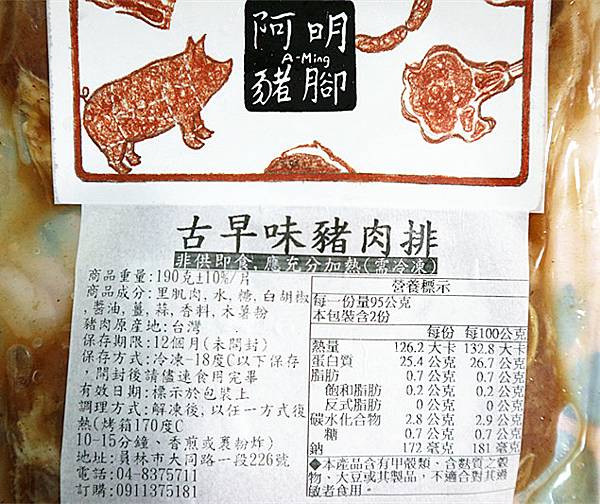 阿明
A-Ming
豬腳
古早味豬肉排
非供即食,應充分加熱(需冷凍)
商品重量:190克±10%/片
商品成分:里肌肉,水,糖,白胡椒
,醬油,薑,蒜,香料,木薯粉
豬肉原產地:台灣
保存期限:12個月(未開封)
保存方式:冷凍-18度C以下保存
,開封後請儘速食用完畢
有效日期:標示於包裝上
調理方式:解凍後,以任一方式復
熱(烤箱170度C
10-15分鐘、香煎或裹粉炸)
地址:員林市大同路一段226號
電話:04-8375711
訂購:0911375181
營養標示
每一份量95公克
本包裝含2份
每份 每100公克
熱量 126.2 大卡 132.8 大卡
蛋白質 25.4 公克 26.7 公克
脂肪 0.7 公克 0.7 公克
飽和脂肪 0.2 公克 0.2 公克
反式脂肪 0 公克 0 公克
碳水化合物 2.8 公克 2.9 公克
糖 0.7 公克 0.7 公克
鈉 172 毫克 181 毫克
◆本產品含有甲殼類、含麩質之穀
物、大豆或其製品，不適合對其過
敏者食用。